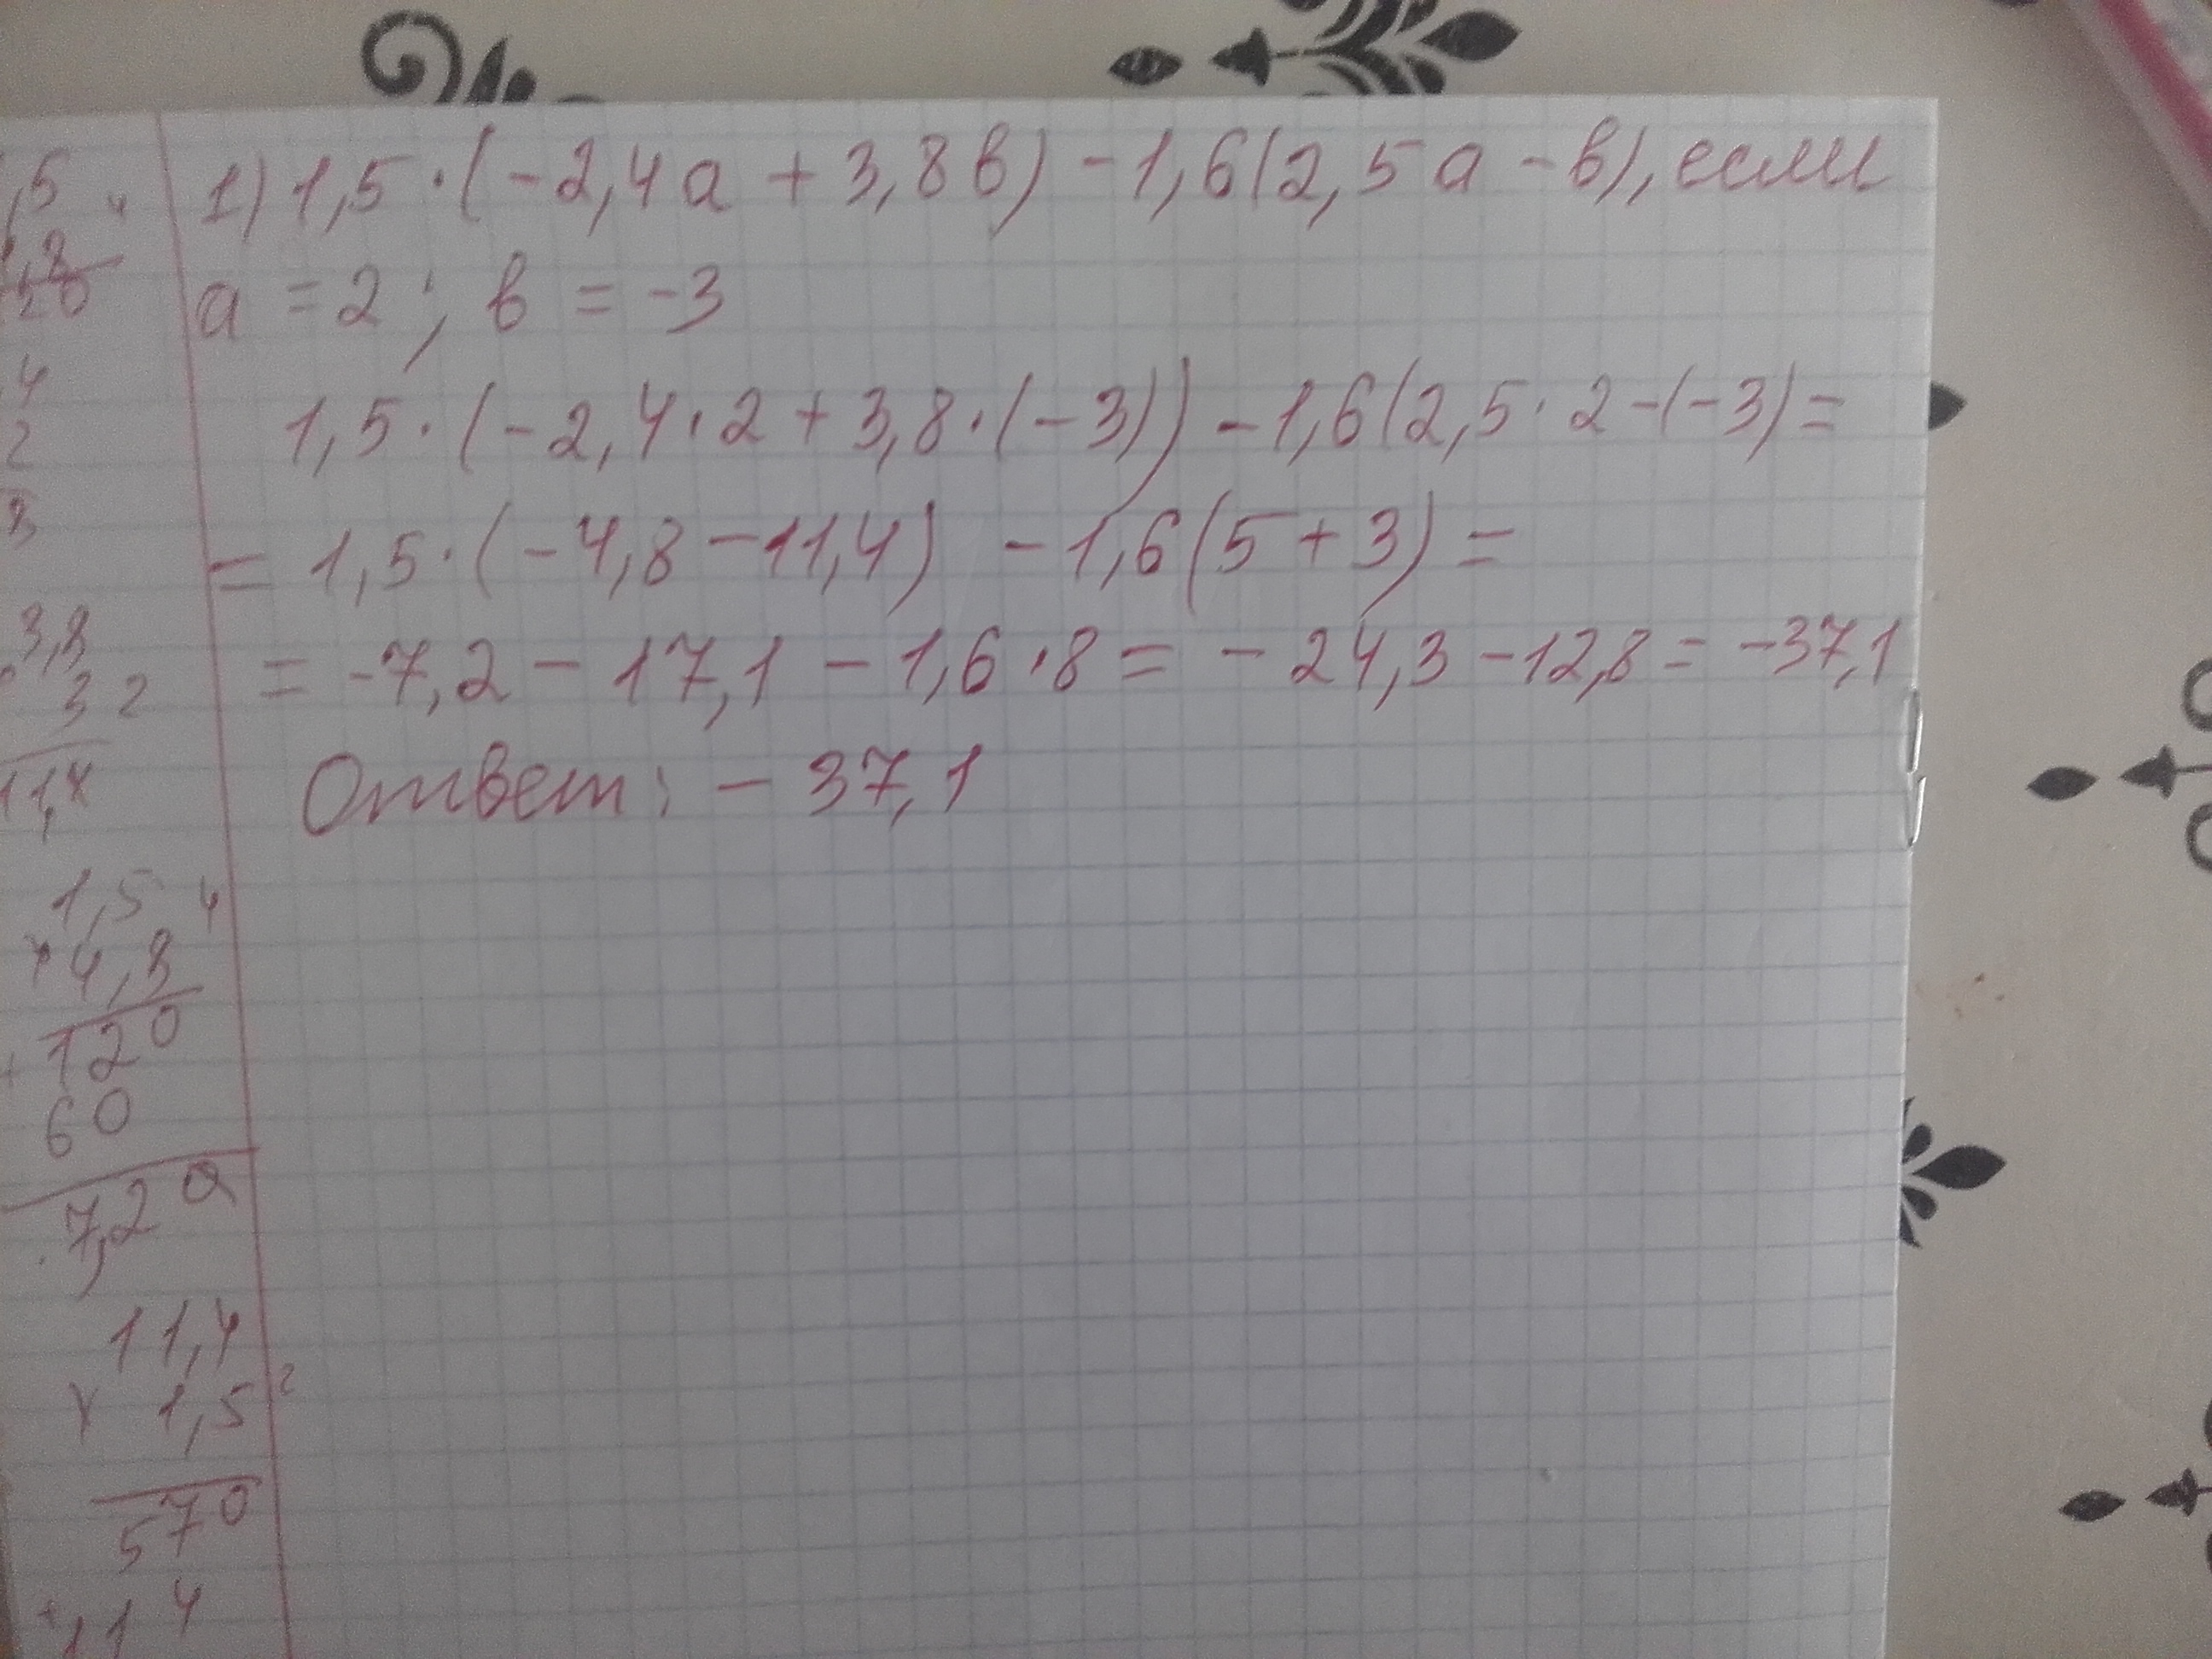 1) 1,5·(-2,4а + 3,8в) - 1,6(2,5а - в), если
а = 2; в = -3
1,5·(-2,4·2 + 3,8·(-3)) - 1,6(2,5·2-(-3)=
= 1,5·(-4,8 - 11,4) - 1,6(5 + 3) =
= -7,2 - 17,1 - 1,6·8 = - 24,3 - 12,8 = -37,1
Ответ: - 37,1
,5
4
2
8
3,8
3 2
11,4
1,5 4
× 4,8
120
+
60
7,20
11,4
× 1,5 2
570
+ 114